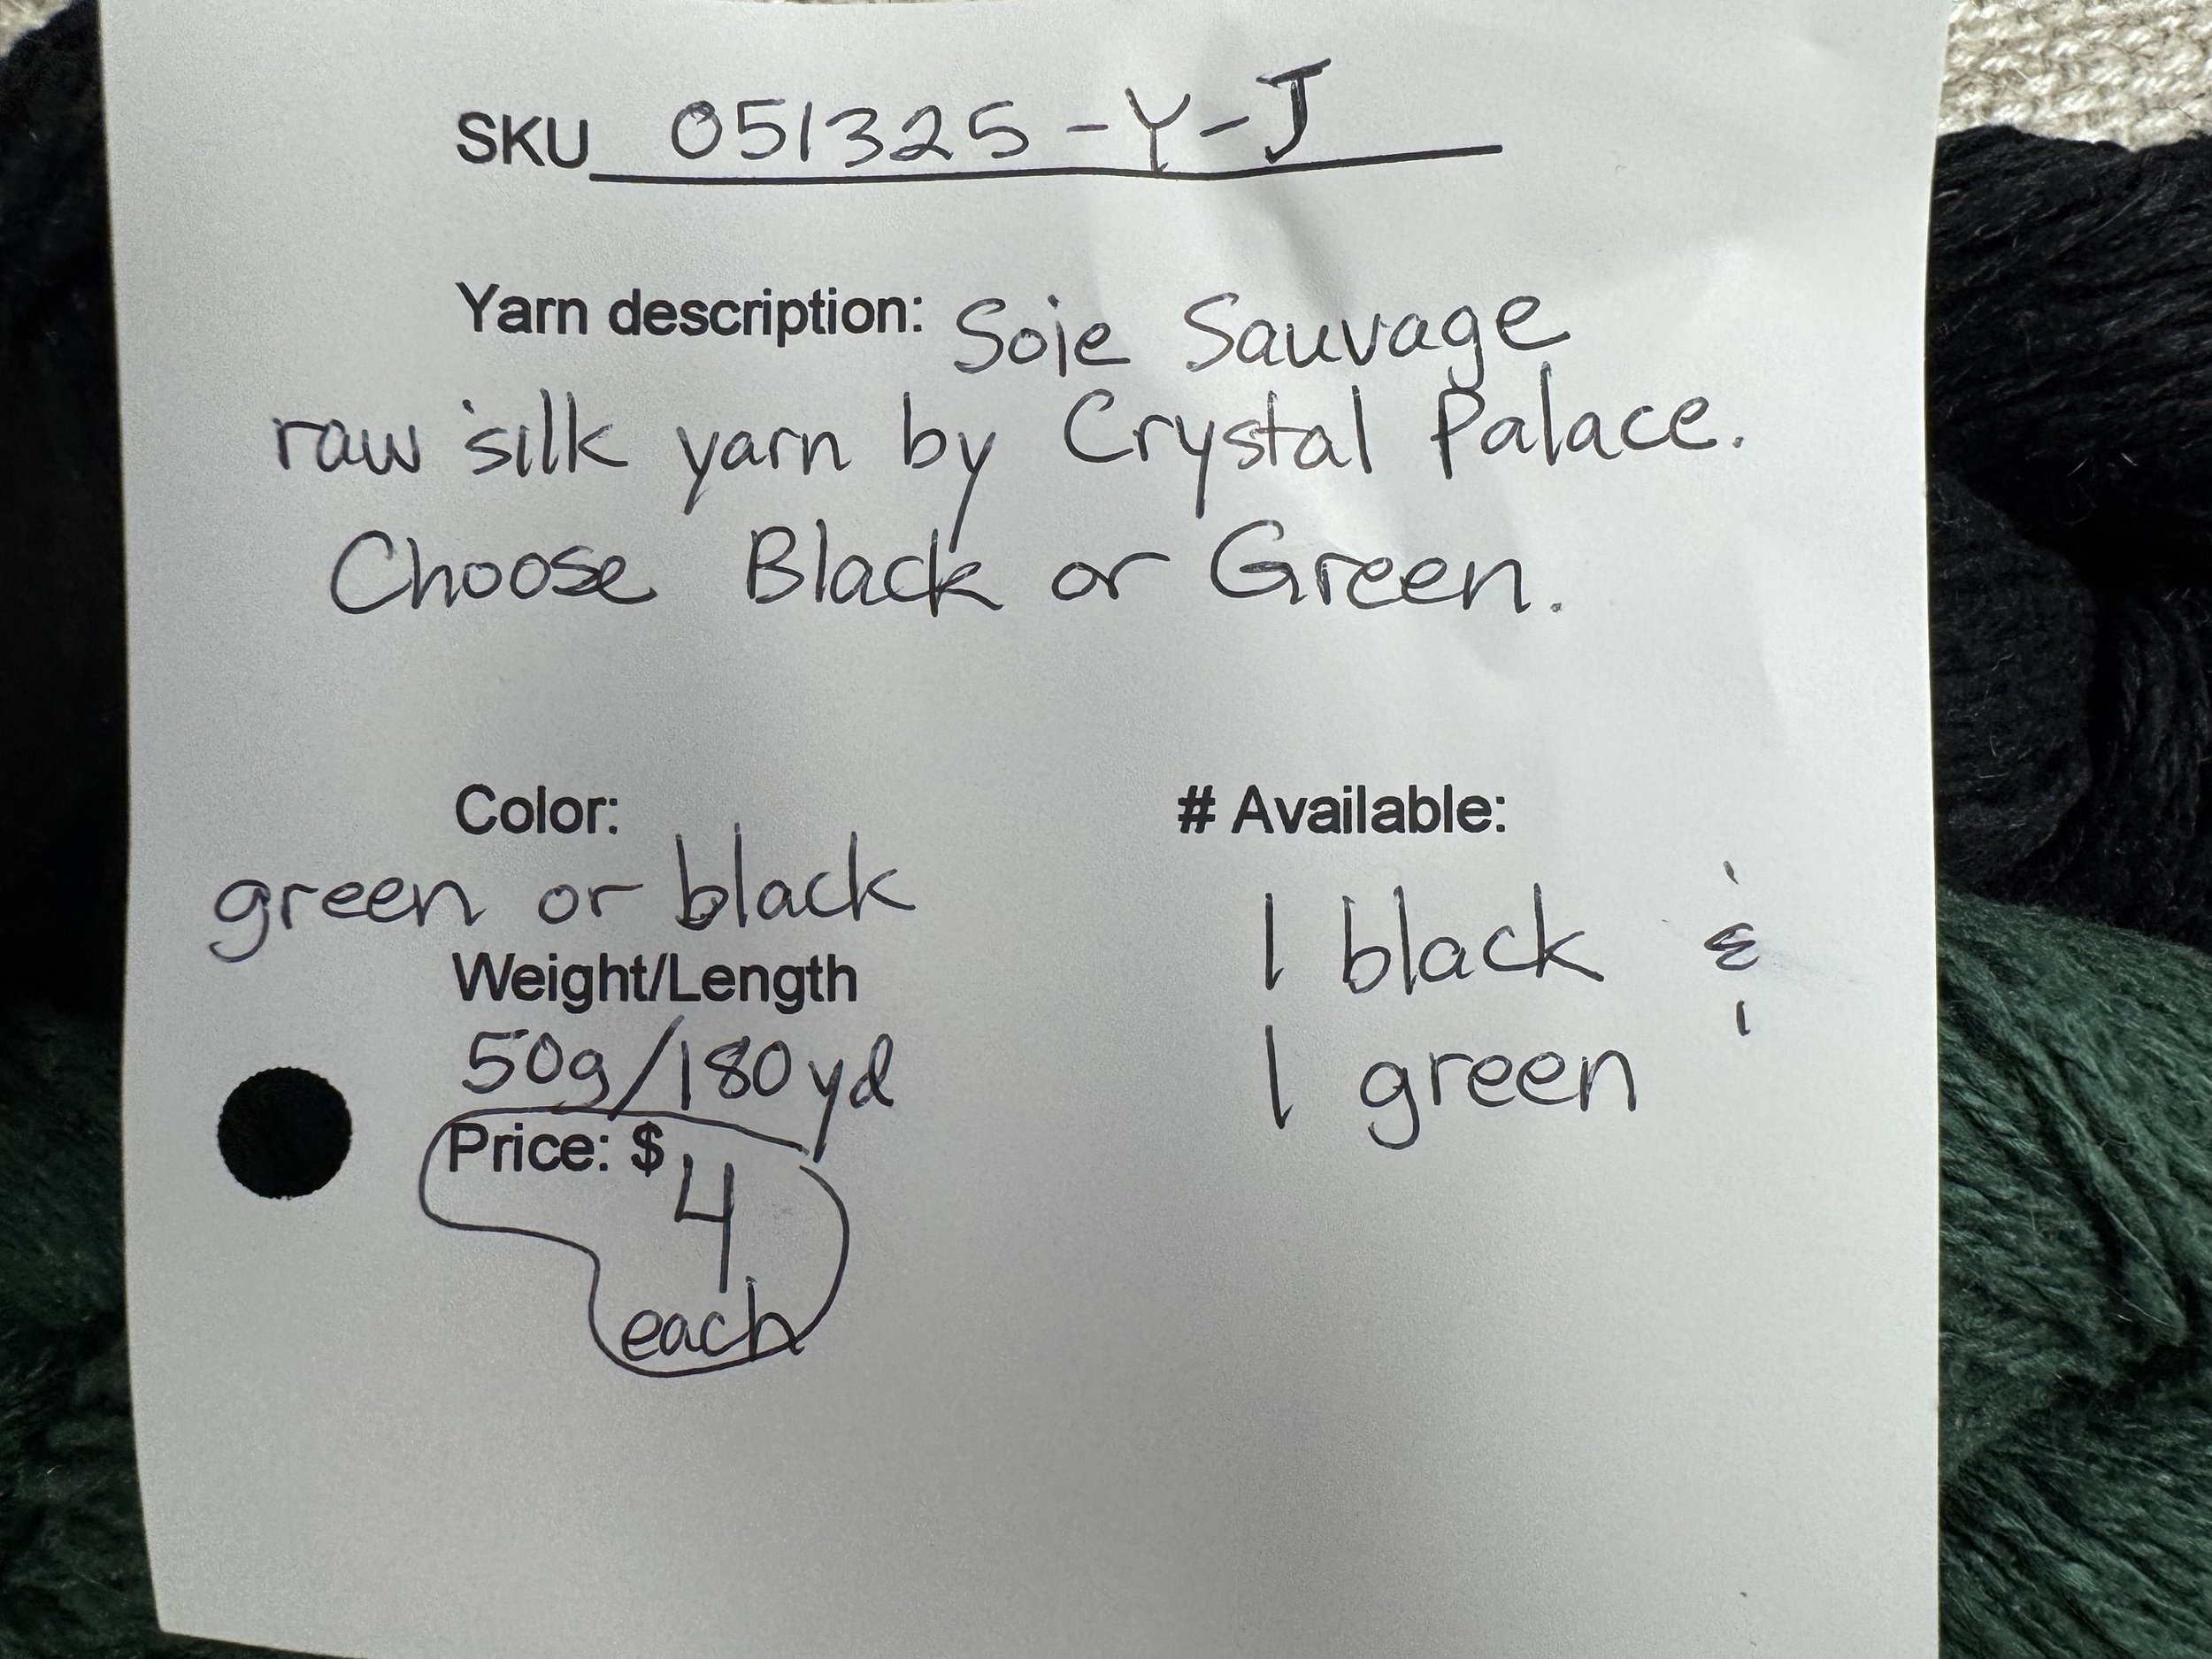 SKU 051325-Y-J
Yarn description: Soie Sauvage
raw silk yarn by Crystal Palace.
Choose Black or Green.
Color:
green or black
Weight/Length
50g/180yd
Price: $4
each
# Available:
1 black &
1 green